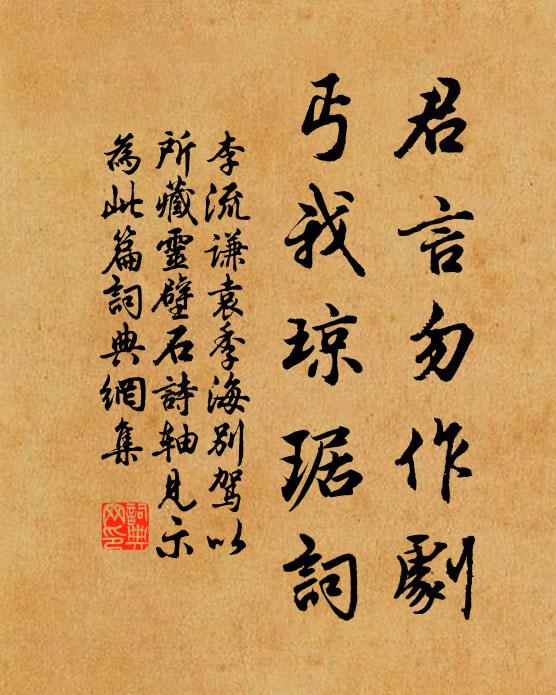 君言勿作劇
丐我琼琚詞
李流謙袁季海別駕以
所藏靈壁石詩軸見示
為此篇詞典網集
詞典
网印